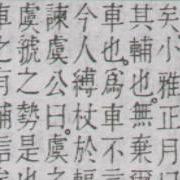 矣小雅正月
其輔也。無
車也。爲車不
今人縛杖於輻
諫虞公曰。虞之
虞虢之勢是也
車之有輔